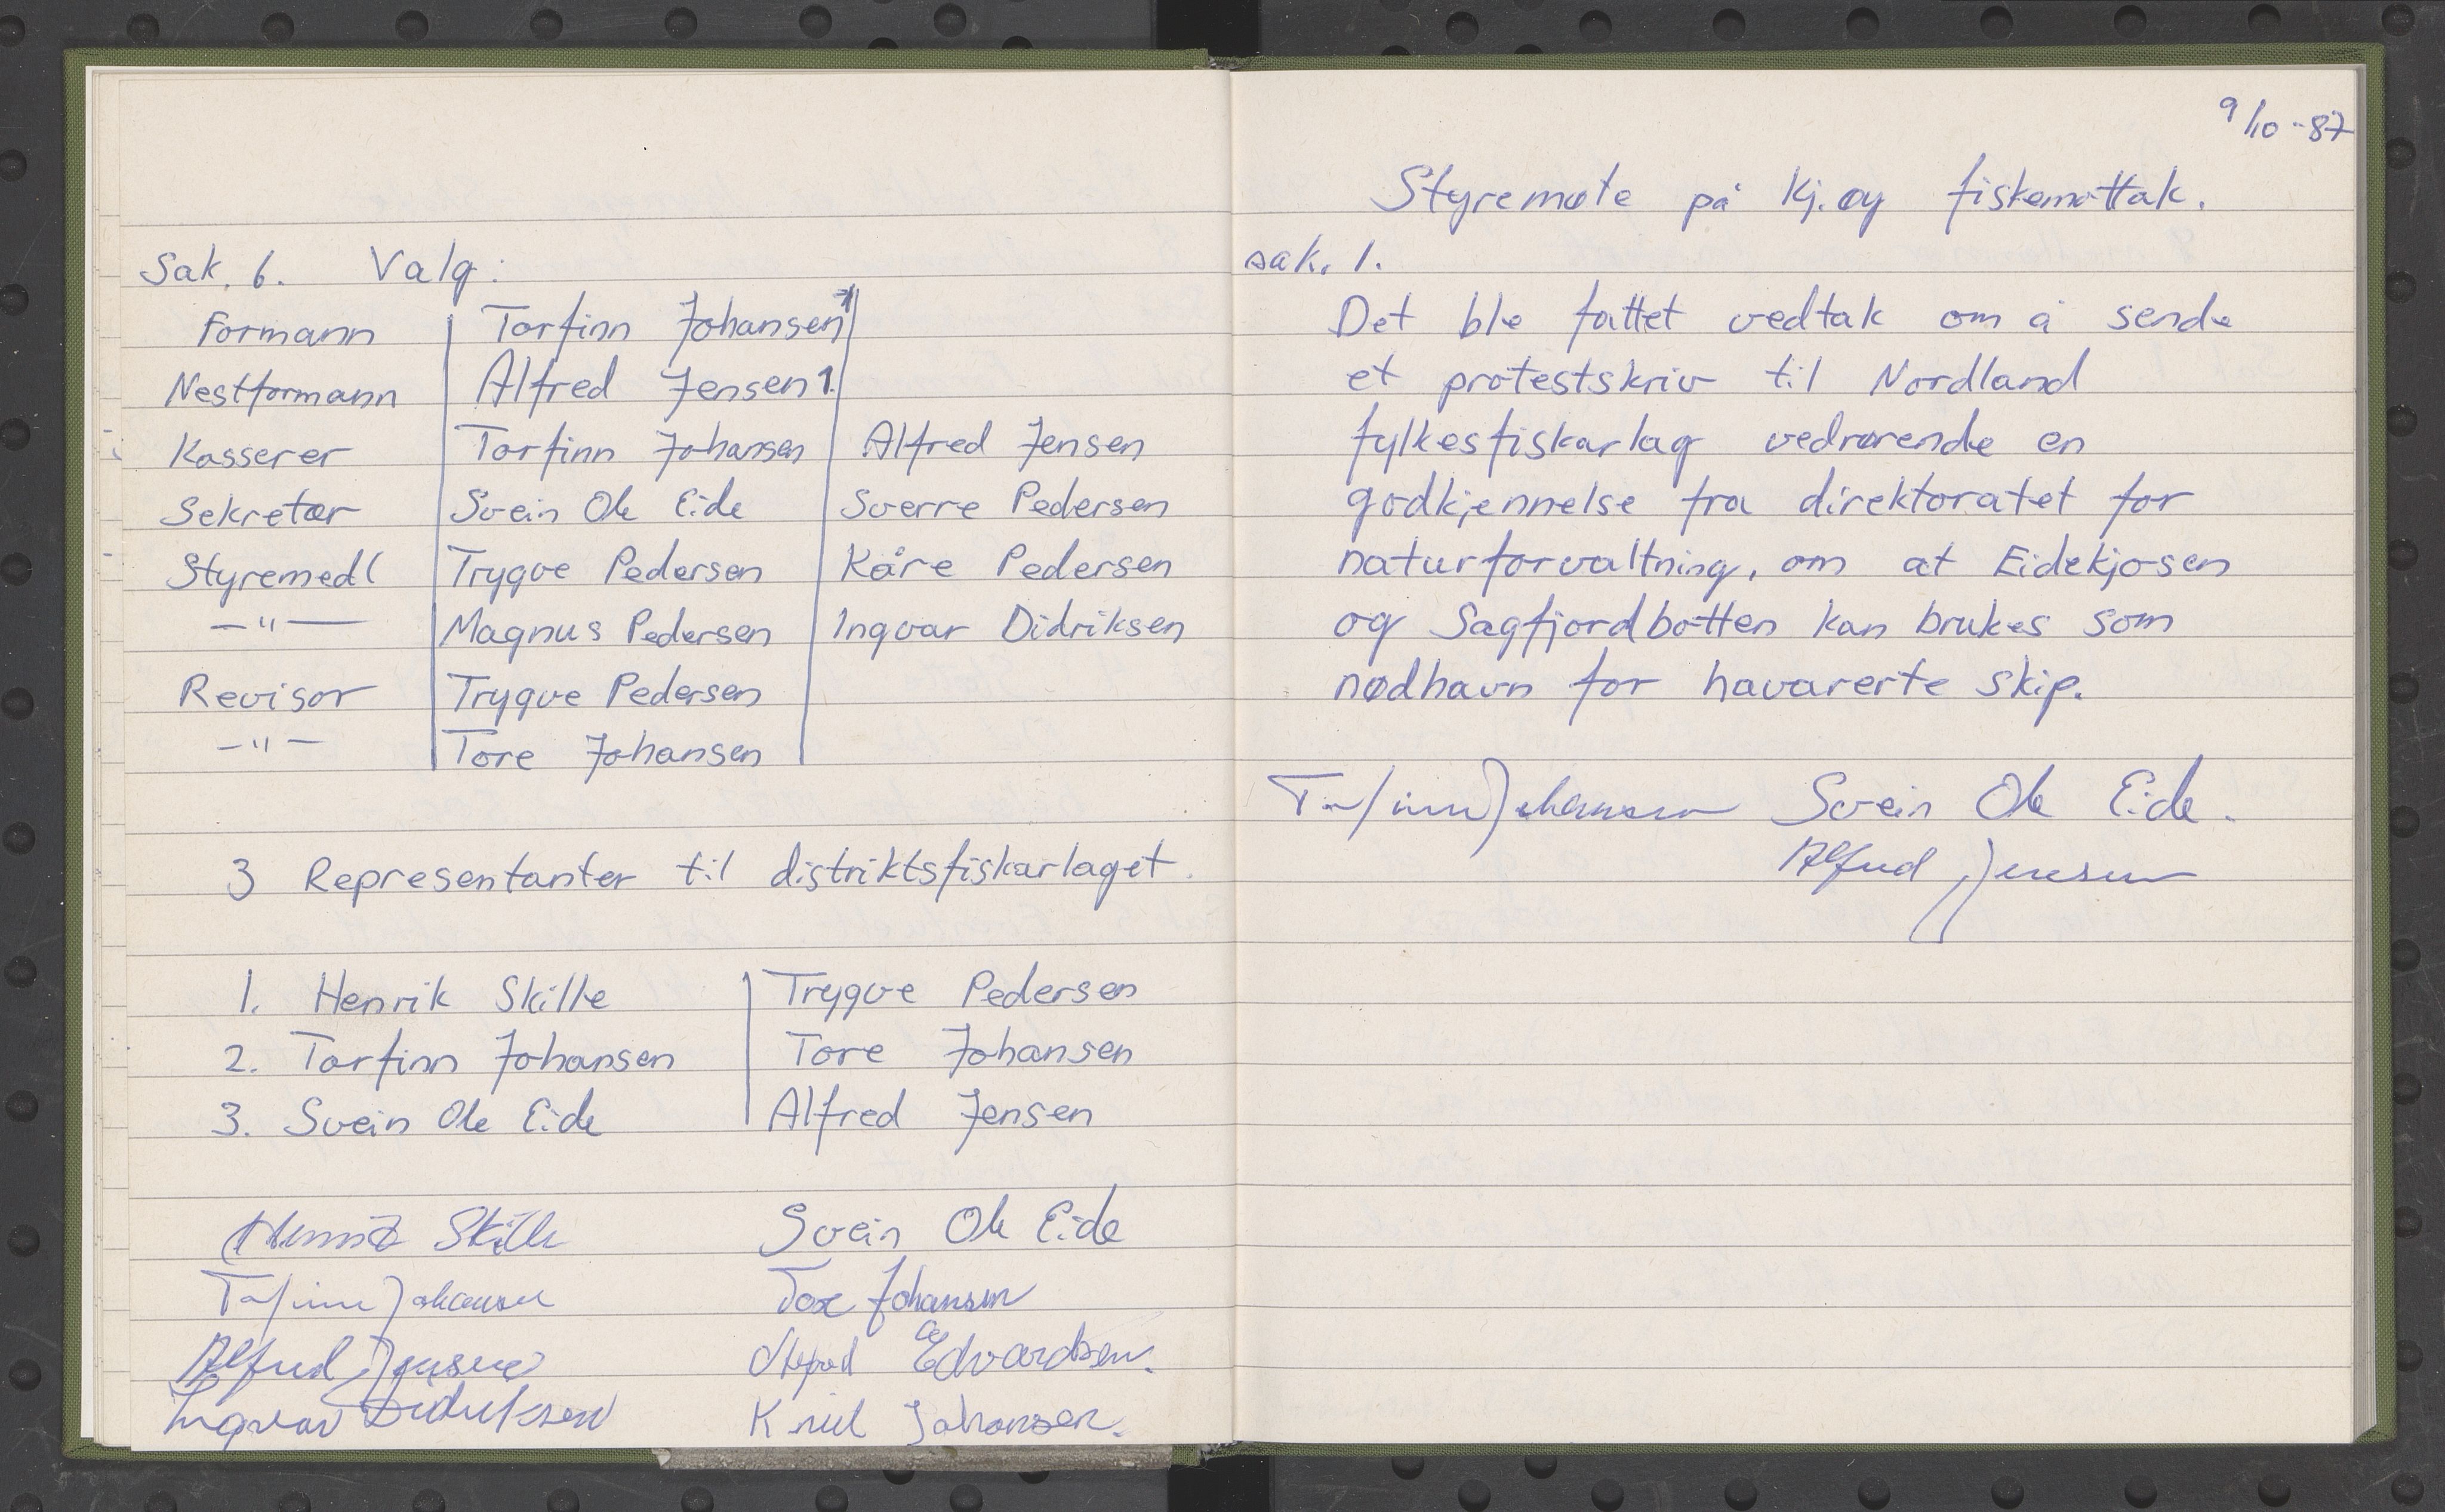 Sak. 6. Valg:
Formann Torfinn Johansen
Nestformann Alfred Jensen 1.
Kasserer Torfinn Johansen Alfred Jensen
Sekretær Svein Ole Eide Sverre Pedersen
Styremedl Trygve Pedersen Kåre Pedersen
—"— Magnus Pedersen Ingvar Didriksen
Revisor Trygve Pedersen
—"— Tore Johansen
3 Representanter til distriktsfiskarlaget.
1. Henrik Skille Trygve Pedersen
2. Torfinn Johansen Tore Johansen
3. Svein Ole Eide Alfred Jensen
Henrik Skille Svein Ole Eide
Torfinn Johansen Tore Johansen
Alfred Jensen Edvardsen.
Ingvar Didriksen Johansen.
9/10-87
Styremøte på Kj.øy fiskemottak.
sak. 1.
Det ble fattet vedtak om å sende
et protestskriv til Nordland
fylkesfiskarlag vedrørende en
godkjennelse fra direktoratet for
naturforvaltning, om at Eidekjosen
og Sagfjordbotten kan brukes som
nødhavn for havarerte skip.
Torfinn Johansen Svein Ole Eide.
Alfred Jensen